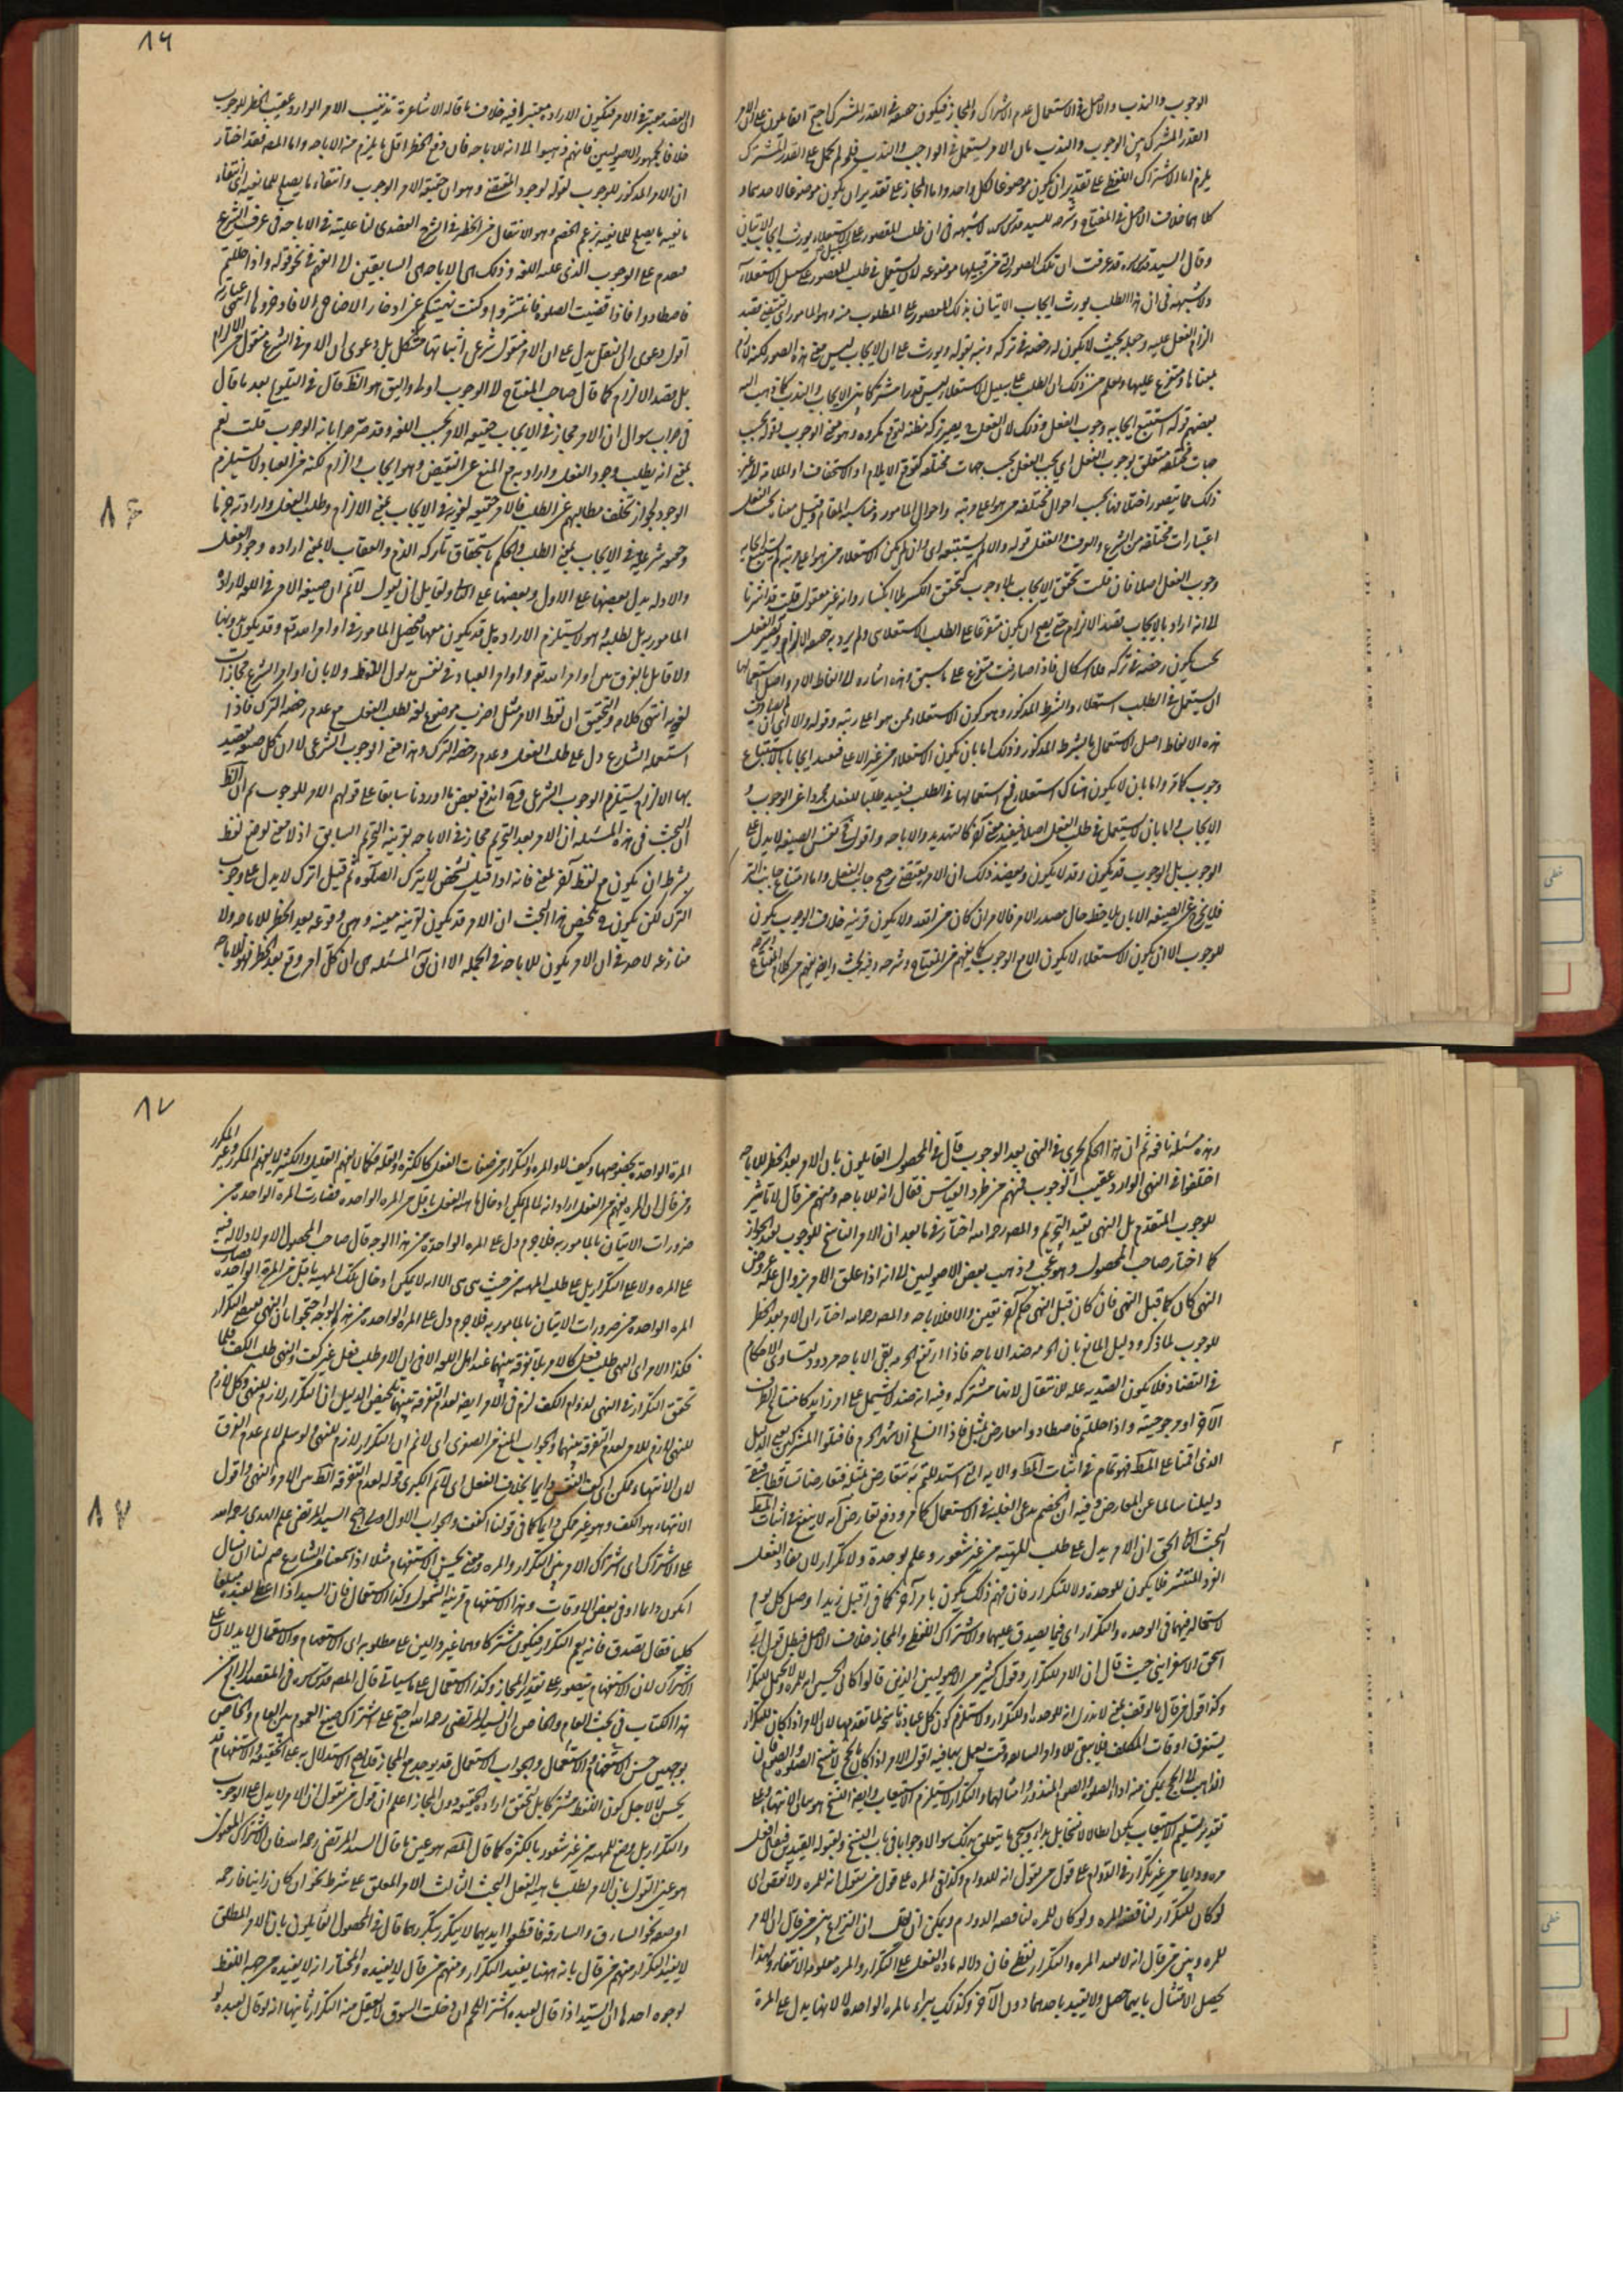 الوجوب والندب والاصل في الاستعمال عدم الاشتراك والمجاز فيكون حقيقة في القدر المشترك احتج القائلون
القدر المشترك بين الوجوب والندب بان الامر يستعمل في الواجب والندب فلو لم يحمل على القدر المشترك
يلزم اما الاشتراك اللفظي على تقدير ان يكون موضوعا لكل واحد واما المجاز على تقدير ان يكون موضوعا لاحدهما و
كلاهما خلاف الاصل في المفتاح وشرحه للسيد قدس سره لا شبهة في ان طلب المتصور على سبيل الاستعلاء يورث ايجاب الاتيان
وقال السيد قدس سره قد عرفت ان تلك الصور التي من قبيلها موضوعة لان يستعمل في طلب المتصور على سبيل الاستعلاء
ولا شبهة في ان هذا الطلب يورث ايجاب الاتيان بذلك المتصور على المطلوب منه وهو المامور اي يقتضي بقصد
الزام الفعل عليه وجعله بحيث لا يكون له رخصة في تركه ونبه بقوله ويورث على ان الايجاب ليس معنى هذه الصور لكنه لازم
لمعناها ومتفرع عليها ويعلم من ذلك ان الطلب على سبيل الاستعلاء ليس قدرا مشتركا بين الايجاب والندب كما ذهب اليه
بعضهم قوله استتبع ايجابه وجوب الفعل وذلك لان الفعل يصير تركه مظنة لتوقع مكروه وهو معنى الوجوب بقوله بحسب
جهات مختلفة متعلق بوجوب الفعل اي يجب الفعل بحسب جهات مختلفة كتوقع الايلام او الاستخفاف او الملامة او غير
ذلك مما يتصور اختلافها بحسب احوال مختلفة من هو اعلى رتبة واحوال المامور ومناسبة المقام وقيل معناه يجب الفعل
اعتبارات مختلفة من الشرع والعرف والعقل قوله والا لم يستتبعه اي وان لم يكن الاستعلاء ممن هو اعلى رتبة لم يستتبع ايجابه
وجوب الفعل اصلا فان قلت تحقق الايجاب بلا وجوب كتحقق الكسر بلا انكسار وانه غير معقول قلت قد اشرنا
الا انه اراد بالايجاب بقصد الالزام حتى يصح ان يكون متفرعا على الطلب الاستعلائي ولم يرد به جعله الالزام وتصيير الفعل
بحيث يكون رخصة في تركه فلا اشكال فاذا صادفت متفرع على ما سبق وهذه اشارة الى الفاظ الامر واصل استعمالها
ان يستعمل في الطلب استعلاء والشرط المذكور وهو كون الاستعلاء ممن هو اعلى رتبة وقوله والا اي ان لم يصادف
هذه الالفاظ اصل الاستعمال بالشرط المذكور وذلك اما بان يكون الاستعلاء من غير الاعلى فيفيد ايجابا بلا استتباع
وجوب كما مر واما بان لا يكون هناك استعلاء مع استعمالها في الطلب فيفيد طلبا للفعل مجردا عن الوجوب و
الايجاب واما بان لا يستعمل في طلب الفعل اصلا فيفيد معنى آخر كالتهديد والاباحة واقول نفس الصيغة لا يدل على
الوجوب بل الوجوب قد يكون وقد لا يكون ويعضد ذلك ان الامر يقتضي ترجيح جانب الفعل واما امتناع جانب الترك
فلا يخرج عن الصيغة الا بان يلاحظ حال مصدر الامر فالامر ان كان من الله ولا يكون قرينة خلاف الوجوب يكون
للوجوب الا ان يكون الاستعلاء لا يكون الا مع الوجوب كما يفهم من المفتاح وشرحه وفيه بحث وايضا يفهم من كلام المفتاح
١٦
ان القصد معتبر في الامر فيكون الارادة معتبرة فيه خلاف ما قاله الاشاعرة تذنيب الامر الوارد عقيب الحظر للوجوب
خلافا لجمهور الاصوليين فانهم ذهبوا الى انه للاباحة فان رفع الحظر اقل ما يلزم منه الاباحة واما المصنف فقد اختار
ان الامر المذكور للوجوب لقوله لوجود المقتضي وهو ان حقيقة الامر الوجوب وانتفاء ما يصلح للمانعية اي انتفاء
مانعية ما يصلح للمانعية بزعم الخصم وهو الانتقال من الحظر في الشرح العضدي لنا غلبته في الاباحة في عرف الشرع
فيقدم على الوجوب الذي عليه اللغة وذلك اي الاباحة هي السابقة الى الفهم في نحو قوله واذا حللتم
فاصطادوا فاذا قضيت الصلوة فانتشروا وكنت نهيتكم عن ادخار الاضاحي الا فادخروها انتهى عبارته
اقول دعوى النقل يدل على ان الامر منقول شرعي اثباتها مشكل بل دعوى ان الامر في الشرع منقول من الالزام
بل بقصد الالزام كما قال صاحب المفتاح الى الوجوب اولى واليق هو الظ قال في التلويح بعد ما قال
في جواب سؤال ان الامر مجاز في الايجاب حقيقة الامر بحسب اللغة وقد صرحوا بانه الوجوب قلت نعم
بمعنى انه يطلب وجود الفعل واراد به مع المنع عن النقيض وهو ايجاب والزام لكنه من العباد لا يستلزم
الوجود لجواز تخلف مطالبهم عن الطلب فالامر حقيقة لغوية في الايجاب بمعنى الالزام وطلب الفعل وارادته جزما
وحقيقة شرعية في الايجاب بمعنى الطلب والحكم باستحقاق تاركه الذم والعقاب لا بمعنى ارادة وجود الفعل
والادلة يدل بعضها على الاول وبعضها على الثاني ولقائل ان يقول لا نم ان صيغة الامر في اللغة لارادة
المامور به بل لطلبه وهو لا يستلزم الارادة بل قد يكون معها تحصيل المامور في اوامر الله تع وقد يكون بدونها
ولا قائل بالفرق بين اوامر الله تع واوامر العباد في نفس مدلول اللفظ ولا بان اوامر الشرع مجازات
لغوية انتهى كلامه والتحقيق ان لفظ الامر مثل اضرب موضوع لغة لطلب الفعل مع عدم رخصة الترك فاذا
استعمله الشارع دل على طلب الفعل وعدم رخصة الترك وهذا معنى الوجوب الشرعي لا ان كل صيغة يقصد
بها الالزام يستلزم الوجوب الشرعي وح اندفع بعض ما اوردنا سابقا على قولهم الامر للوجوب ثم ان الظ
ان البحث في هذه المسئلة ان الامر بعد التحريم مجاز في الاباحة بقرينة التحريم السابق اذ لا معنى لوضع لفظ
بشرط ان يكون مع لفظ آخر لمعنى فانه اذا قيل لشخص لا يترك الصلوة ثم قيل اترك لا يدل على وجوب
الترك لكن يكون تلخيص هذا البحث ان الامر قد يكون لقرينة معينة وهي وقوعه بعد الحظر للاباحة ولا
منازعة لاحد في ان الامر يكون للاباحة في الجملة الا ان يق المسئلة هي ان كل امر وقع بعد الحظر فهو للاباحة
٨٦
وهذه مسئلة نافعة ثم ان هذا الحكم يجري في النهي بعد الوجوب قال في المحصول القائلون بان الامر بعد الحظر للاباحة
اختلفوا في النهي الوارد عقيب الوجوب فمنهم من طرد القياس فقال انه للاباحة ومنهم من قال لا تاثير
للوجوب المتقدم بل النهي يفيد التحريم والمصنف رحمه الله اختار في ما بعد ان الامر الناسخ للوجوب يفيد الجواز
كما اختار صاحب المحصول وهو عجب وذهب بعض الاصوليين الى انه اذا علق الامر بزوال علة عروض
النهي كان كما قبل النهي فان كان قبل النهي حكم آخر تعين والا فللاباحة والمصنف رحمه الله اختار ان الامر بعد الحظر
للوجوب لما ذكر ودليل المانع بان الحرمة ضد الاباحة فاذا ارتفع الحرمة بقي الاباحة مردود لتساوي الاحكام
في التضاد فلا يكون الضدية علة للانتقال لانها مشتركة وفيه ان ضد لا يشتمل على امر زايد كامتناع الطرف
الآخر او مرجوحيته واذا حللتم فاصطادوا معارض بمثل فاذا انسلخ الاشهر الحرم فاقتلوا المشركين فبقي الدليل
الذي اقمنا على المط فهو تمام في اثبات المط والآية التي استدللتم به تتعارض بمثله فتعارضا تساقطا فبقي
دليلنا سالما عن المعارض وفيه ان الخصم يدعي الغلبة في الاستعمال كما مر ودفع تعارض آية لا ينفع في اثبات المط
البحث الثاني الحق ان الامر يدل على طلب للمهية من غير شعور وعلم بوحدة ولا تكرار لان مفاد الفعل
الفرد المنتشر فلا يكون للوحدة ولا للتكرار فان فهم ذلك يكون بامر آخر كما في اقبل زيدا وصل كل يوم
لاستحالته فيهما في الوحدة والتكرار اي فيما يصدق عليهما والاشتراك اللفظي والمجاز خلاف الاصل فبطل قول ابي
اسحق الاسفرايني حيث قال ان الامر للتكرار وقول كثير من الاصوليين الذين قالوا كابي الحسين انه للمرة ولا يحتمل التكرار
وكذا قول من قال بالوقف بمعنى لا ندري انه للوحدة او للتكرار ولاستلزم كون كل عبادة ناسخة لما تقدمها لان الامر اذا كان للتكرار
يستغرق اوقات المكلف فلا يبقى للاوامر السابقة وقت يعمل بها فيه اقول الامر اذا كان بالحج لا ينسخ الصلوة والصوم فان
الذاهب الى الحج يمكن منه اداء الصلوة والصوم المنذور وامثالهما والتكرار لا يستلزم الاستيعاب وايضا النسخ هو بيان الانتهاء وعلى
تقدير تسليم الاستيعاب يكون ابطالا لا نسخا بل بداء وسيجيء ما يتعلق بذلك سوالا وجوابا في باب النسخ ولقبوله التقييد فيقال افعل
مرة ودايما من غير تكرار في الدوام على قول من يقول انه للدوام وكذا في المرة على قول من يقول انه للمرة ولا نقض اي
لو كان للتكرار لناقضه المرة ولو كان للمرة لناقضه الدوام ويمكن ان يقال ان النزاع بين من قال ان الامر
للمرة وبين من قال انه لا يفيد المرة والتكرار لفظي فان دلالة مادة الفعل على التكرار والمرة معلومة الانتفاء ولهذا
يحصل الامتثال بايهما حصل ولا يقيد باحدهما دون الآخر وكذلك يبراء بالمرة الواحدة لا لانها يدل على المرة
١٧
المرة الواحدة بخصوصها وكيف لا والمرة والتكرار من صفات الفعل كالكثرة والقلة فكما لا يفهم القليل والكثير لا يفهم المكرر وغير المكرر
ومن قال ان المرة يفهم من الفعل اراد انه لما لم يمكن ادخال ماهية الفعل باقل من المرة الواحدة فصارت المرة الواحدة من
ضرورات الاتيان بالمامور به فلا جرم دل على المرة الواحدة من هذا الوجه قال صاحب المحصول الامر لا دلالة فيه
على المرة ولا على التكرار بل على طلب المهية من حيث هي هي الا انه لا يمكن ادخال تلك المهية باقل من المرة الواحدة فصارت
المرة الواحدة من ضرورات الاتيان بالمامور به فلا جرم دل على المرة الواحدة من هذا الوجه احتجوا بان النهي يقتضي التكرار
فكذا الامر اي النهي طلب فعل كالامر بلا تفرقة بينهما عند اهل اللغة الا في ان الامر طلب فعل غير كف والنهي طلب الكف فلما
تحقق التكرار في النهي لدوام الكف لزم في الامر ايضا لعدم التفرقة بينهما تلخيص الدليل ان التكرار لازم للنهي وكل لازم
للنهي لازم للامر لعدم التفرقة بينهما والجواب المنع من الصغرى اي لا نم ان التكرار لازم للنهي ولو سلم لا نم عدم الفرق
لان الانتهاء ممكن اي كف النفس دايما بخلاف الفعل اي لا نم الكبرى قوله لعدم التفرقة الظ بين الامر والنهي واقول
الانتهاء هو الكف وهو غير ممكن دايما كما في قولنا اكفف والجواب الاول اصلح احتج السيد المرتضى علم الهدى رحمه الله
على الاشتراك اي اشتراك الامر بين التكرار والمرة ومعنى بحسن الاستفهام مثلا اذا سمعنا من الشارع صم لنا ان نسال
ايكون دايما او في بعض الاوقات وهذا الاستفهام قرينة الشمول وكذا الاستعمال فان السيد اذا اعطى لعبده مبلغا
كليا فقال تصدق فانه يعم التكرار فيكون مشتركا وهما غير دالين على مطلوبه اي الاستفهام والاستعمال لا يدلان على
الاشتراك لان الاستفهام يتصور على تقدير المجاز وكذا الاستعمال على ما سياتي قال المصنف قدس سره في المقصد الرابع من
هذا الكتاب في بحث العام والخاص ان السيد المرتضى رحمه الله احتج على اشتراك صيغ العموم بين العام والخاص
بوجهين حسن الاستفهام والاستعمال والجواب الاستعمال قد يوجد مع المجاز فلا يصح الاستدلال به على الحقيقة والاستفهام قد
يحسن لا لاجل كون اللفظ مشتركا بل لتحقق ارادة الحقيقة دون المجاز اعلم ان قول من يقول ان الامر لا يدل على الوجوب
والتكرار بل وضع للمهية من غير شعور بالكثرة كما قال المصنف هو عين ما قال السيد المرتضى رحمه الله فان الاشتراك المعنوي
هو عين القول بان الامر لطلب ماهية الفعل البحث الثالث الامر المعلق على شرط نحو ان كان زانيا فارجمه
او صفة نحو السارق والسارقة فاقطعوا ايديهما لا يتكرر بتكررهما قال في المحصول القائلون بان الامر المطلق
لا يفيد التكرار منهم من قال بانه ههنا يفيد التكرار ومنهم من قال لا يفيده والمختار انه لا يفيده من جهة اللفظ
لوجوه احدها ان السيد اذا قال لعبده اشتر اللحم ان دخلت السوق لا يعقل منه التكرار ثانيها انه لو قال لعبده
٨٧